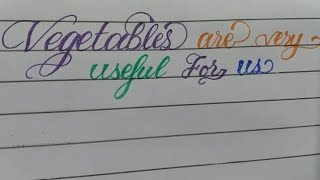 Vegetables are very
useful For us